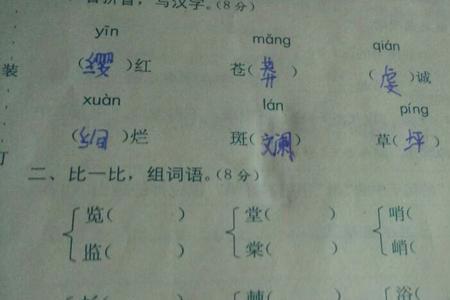 拼音,写汉字。(8分)
yīn mǎng qián
装 (缨)红 苍(莽) (虔)诚
xuàn lán píng
(绚)烂 斑(斓) 草(坪)
订
二、比一比,组词语。(8分)
览( ) 堂( ) 哨(
监( ) 棠( ) 峭(
浴(